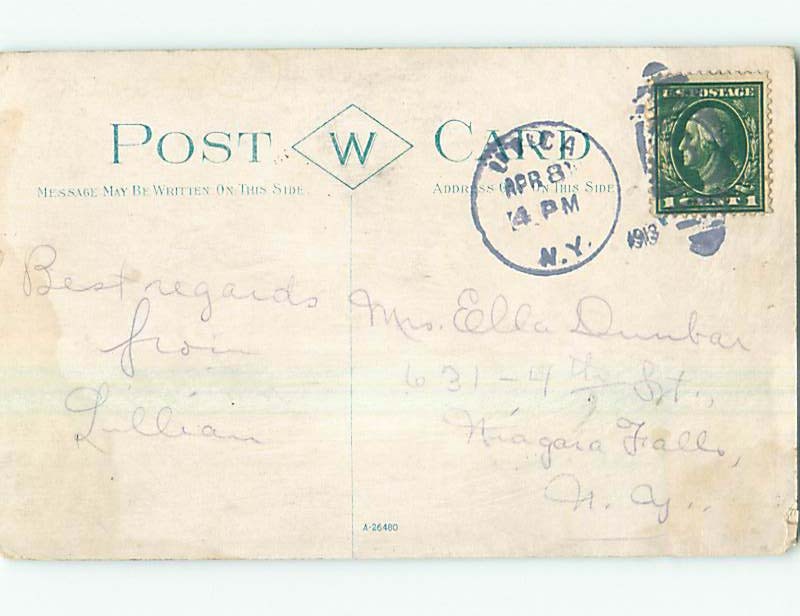 POST W CARD
MESSAGE MAY BE WRITTEN ON THIS SIDE
ADDRESS ON THIS SIDE
U.S. POSTAGE
1 CENT 1
UTICA
APR 8
4 PM
N.Y.
1913
Best regards
from
Lillian
Mrs. Ella Dunbar
631-4th St.,
Niagara Falls,
N. Y.
A-26480